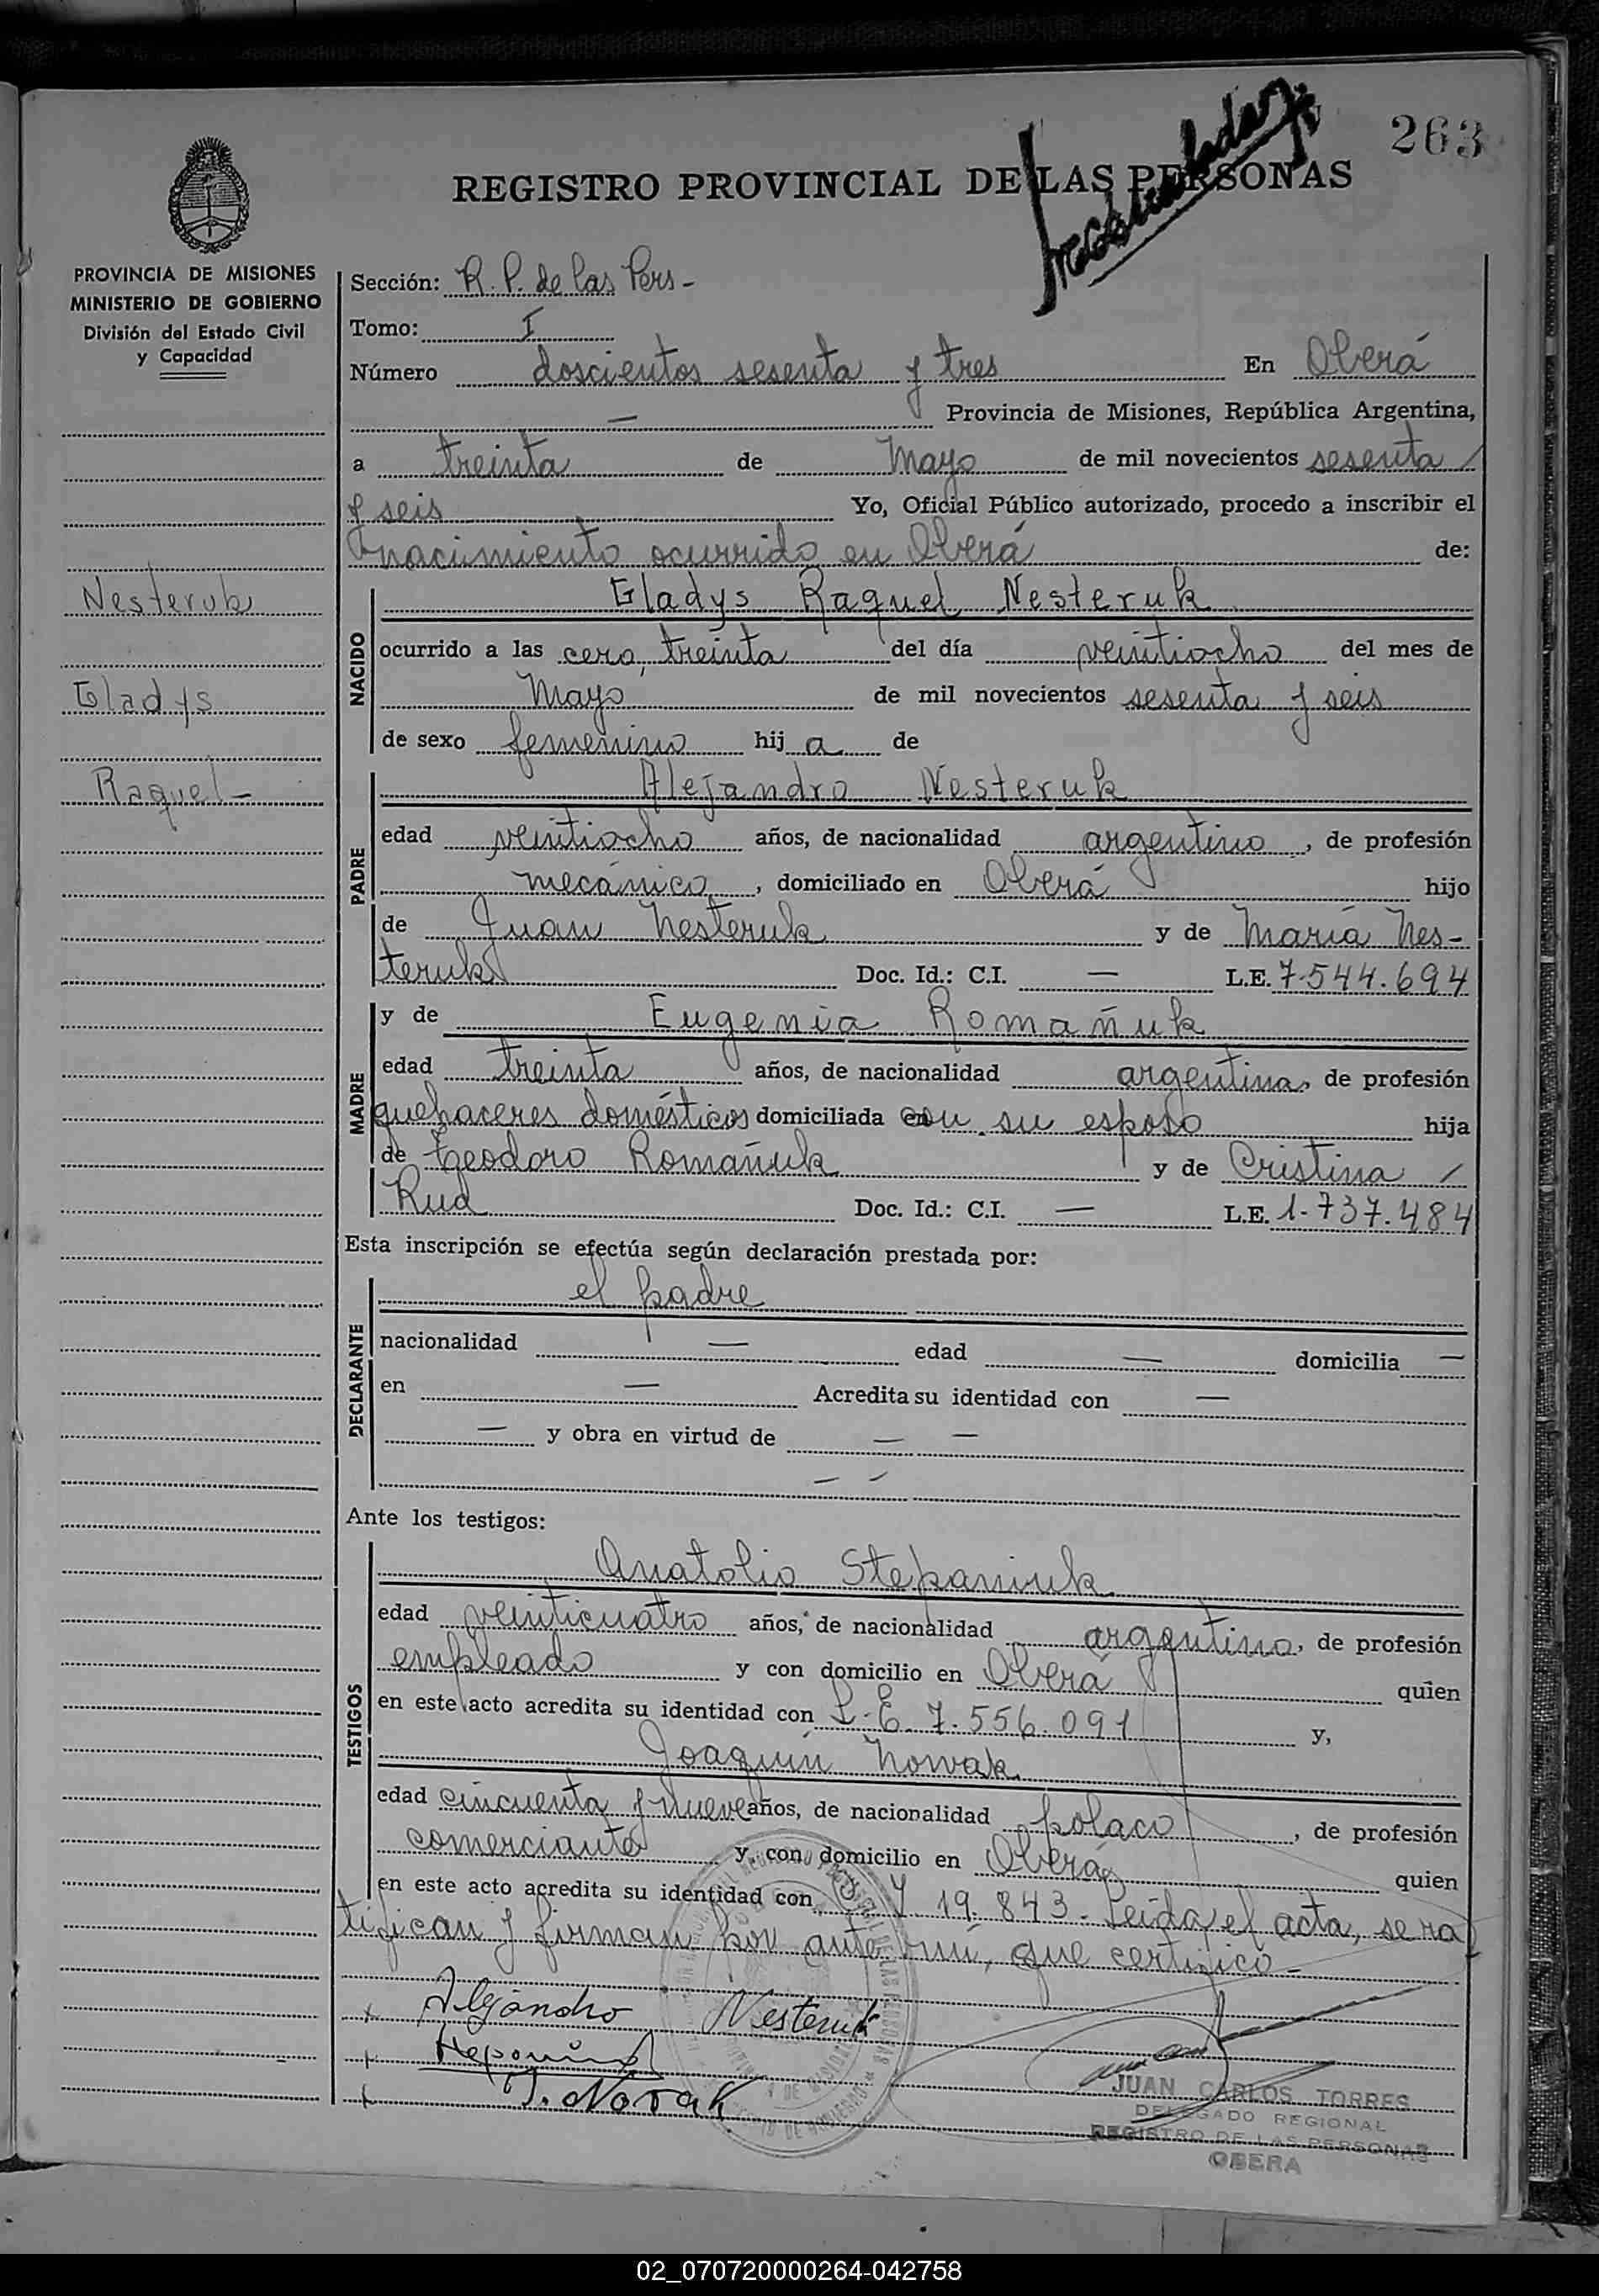 263
REGISTRO PROVINCIAL DE LAS PERSONAS
PROVINCIA DE MISIONES
MINISTERIO DE GOBIERNO
División del Estado Civil
y Capacidad
Nesteruk
Gladys
Raquel-
Sección: R. P. de las Pers-
Tomo: I
Número doscientos sesenta y tres En Oberá
— Provincia de Misiones, República Argentina,
a treinta de Mayo de mil novecientos sesenta /
y seis Yo, Oficial Público autorizado, procedo a inscribir el
nacimiento ocurrido en Oberá de:
NACIDO
Gladys Raquel Nesteruk
ocurrido a las cero, treinta del día veintiocho del mes de
Mayo de mil novecientos sesenta y seis
de sexo femenino hij a de
PADRE
Alejandro Nesteruk
edad veintiocho años, de nacionalidad argentino, de profesión
mecánico, domiciliado en Oberá hijo
de Juan Nesteruk y de María Nes-
teruk Doc. Id.: C.I. — L.E. 7.544.694
MADRE
y de Eugenia Romañuk
edad treinta años, de nacionalidad argentina, de profesión
quehaceres domésticos domiciliada con su esposo hija
de Teodoro Romañuk y de Cristina /
Rud Doc. Id.: C.I. — L.E. 1.737.484
Esta inscripción se efectúa según declaración prestada por:
DECLARANTE
el padre
nacionalidad — edad — domicilia —
en — Acredita su identidad con —
— y obra en virtud de — —
— —
Ante los testigos:
TESTIGOS
Anatolio Stepaniuk
edad veinticuatro años, de nacionalidad argentina, de profesión
empleado y con domicilio en Oberá quien
en este acto acredita su identidad con L.E. 7.556.091 y,
Joaquín Nowak
edad cincuenta y nueve años, de nacionalidad polaco, de profesión
comerciante y con domicilio en Oberá quien
en este acto acredita su identidad con 19.843- Leída el acta, se ra
tifican y firman por ante mí, que certifico-
Alejandro Nesteruk
J. Novak
JUAN CARLOS TORRES
DELEGADO REGIONAL
REGISTRO DE LAS PERSONAS
OBERA
02_070720000264-042758